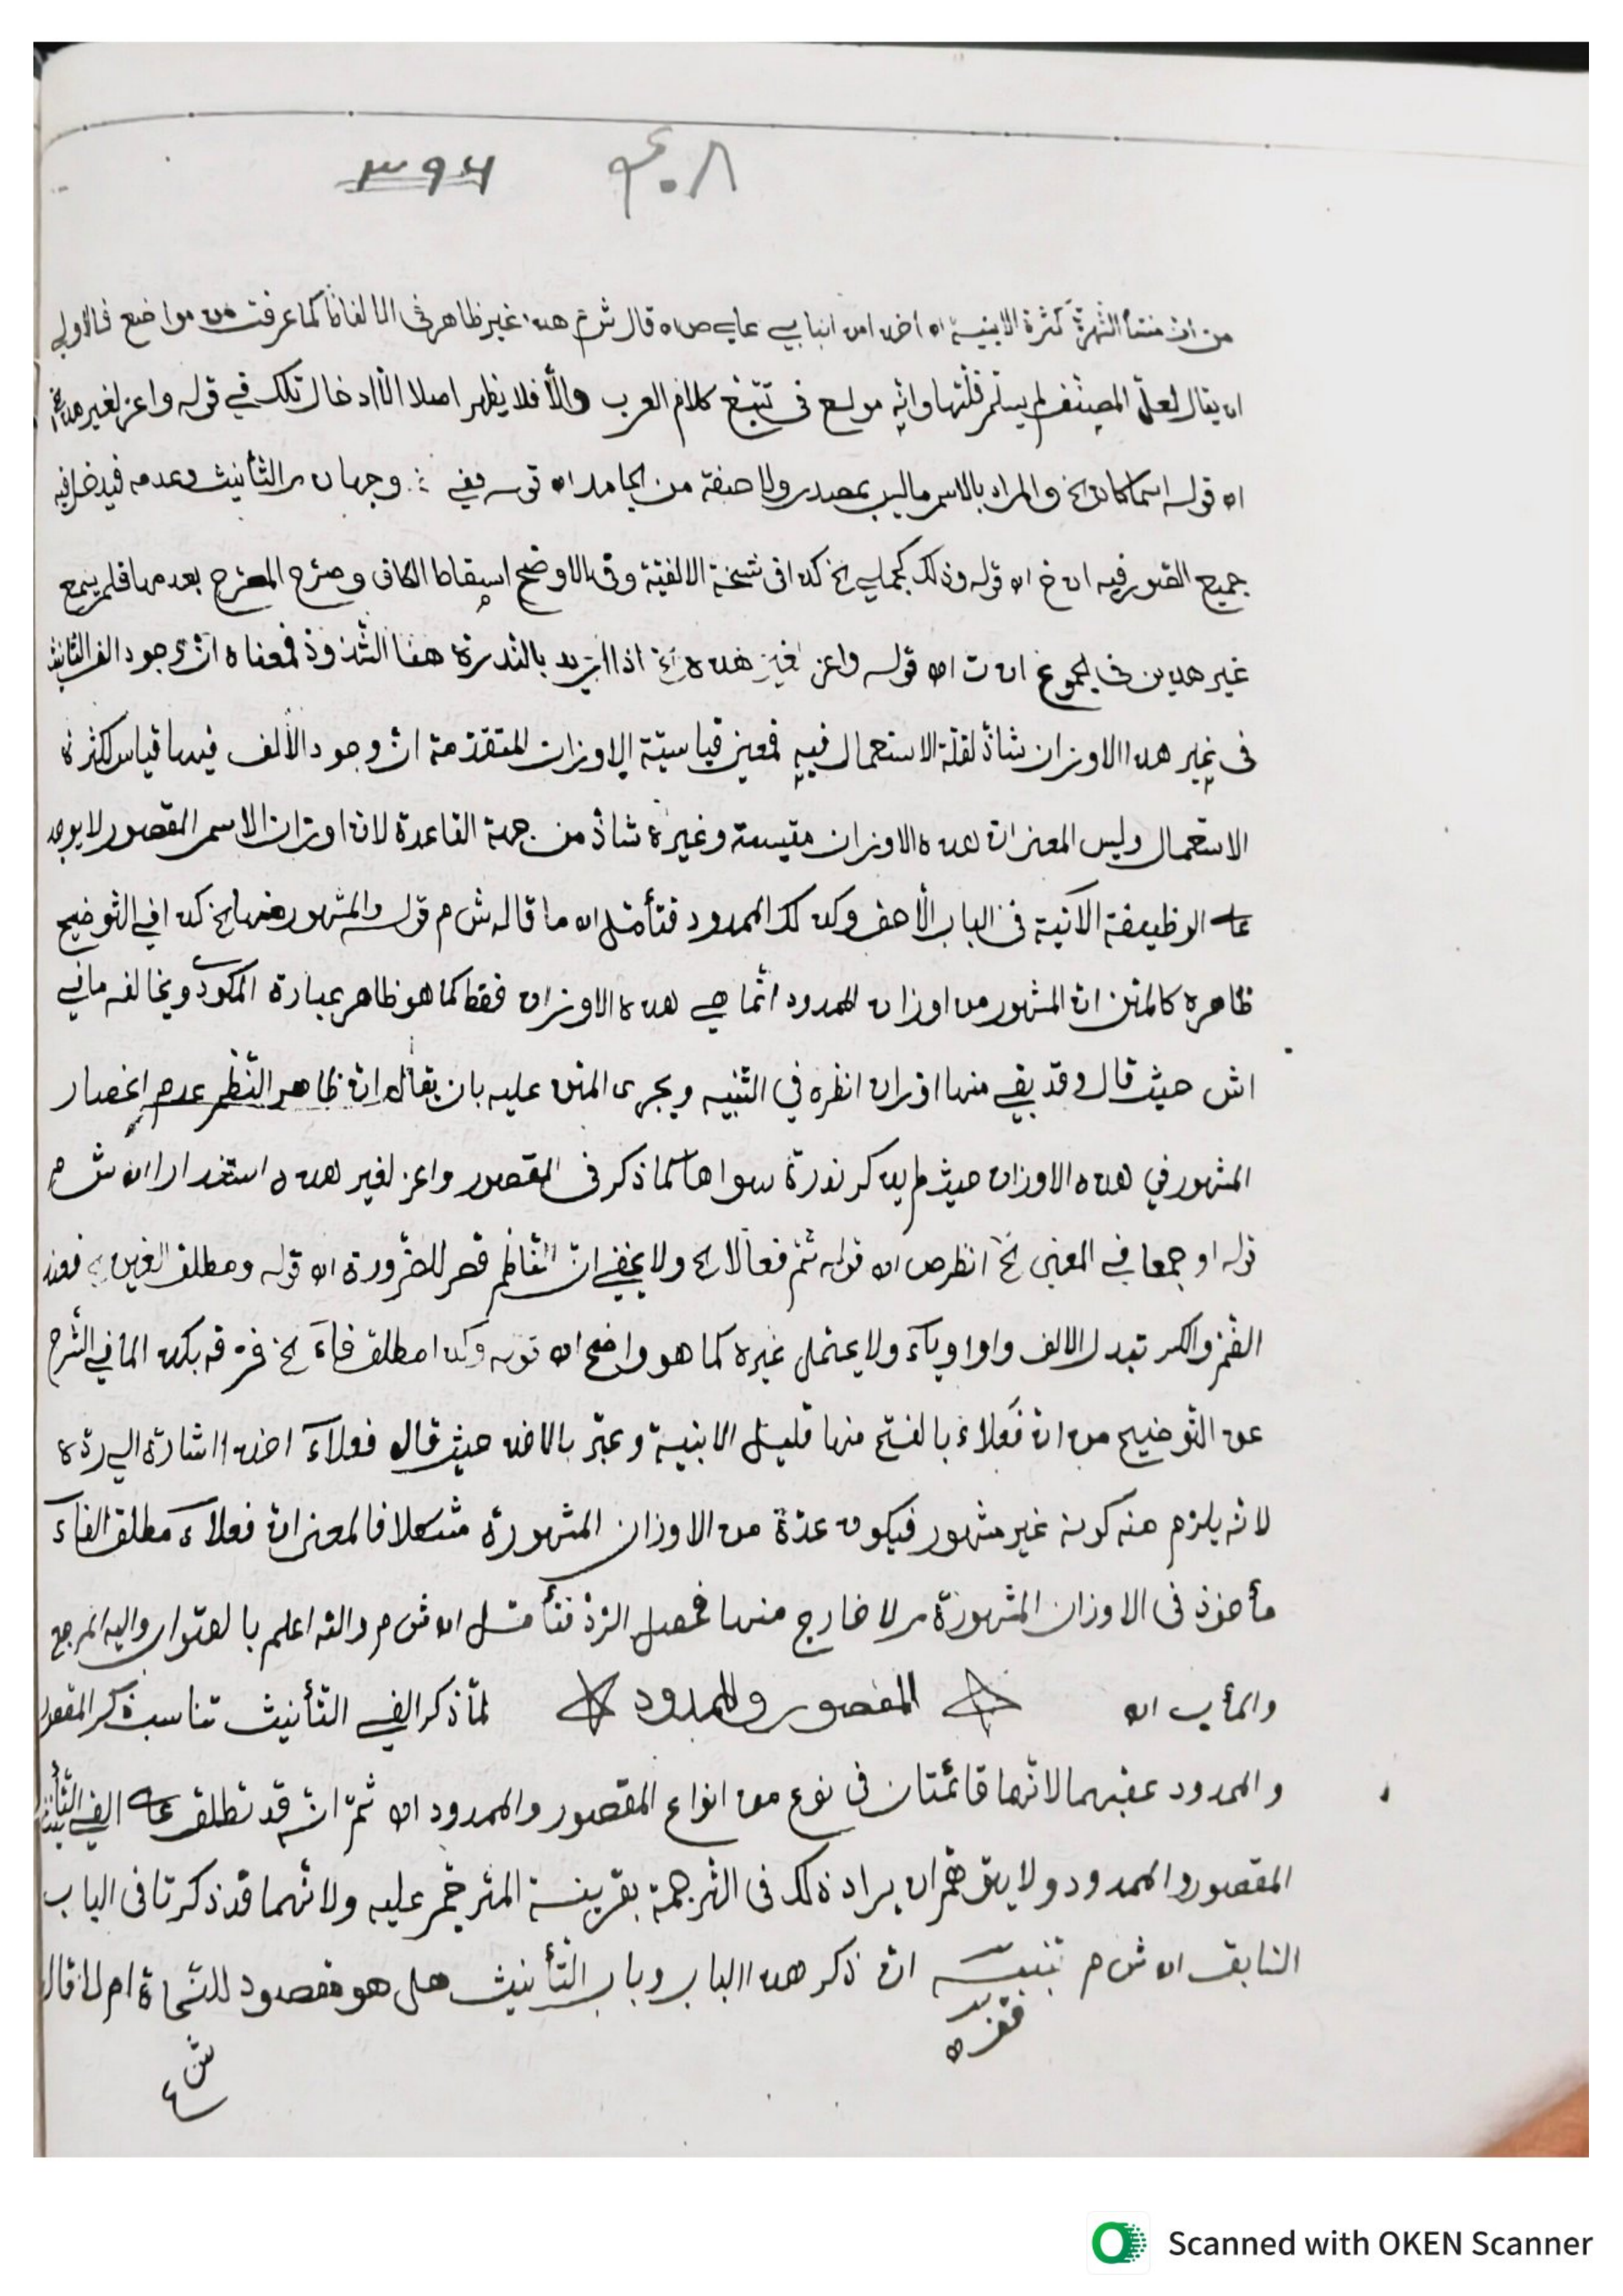 ٤٠٨ ٣٩٤
من ان منشأ الشهرة كثرة الابنية اه اخذا من انبابي على ص اه قال ش م هذا غير ظاهر في كما عرفت من مواضع فالاولى
ان يقال لعلّ المصنّف لم يسلّم قلّتها وانّه مولع في تتبّع كلام العرب والّا فلا يظهر اصلا ادخال تلك في قوله واعز لغير هذه
اه قوله اسما كان الخ والمراد بالاسم ما ليس بمصدر ولا صفة من الجامد اه قوله ففي وجهان التأنيث وعدمه فيدخل فيه
جميع الصور فيه ان خ اه قوله وذلك كجملي الخ كذا في نسخة الالفيّة وفي الاوضح اسقاط الكاف وصرّح بعدمها فلم يسمع
غير هذين في ان ت اه قوله واعز لغير هذه الخ اذا اريد بالندرة هنا الشذوذ فمعناه انّ وجود الف التانيث
في غير هذا الاوزان شاذّ لقلّة الاستعمال فيه فمعنى قياسيّة الاوزان المتقدّمة انّ وجود الألف فيها قياس لكثرة
الاستعمال وليس المعنى انّ هذه الاوزان مقيسة وغيره شاذّ من جهة القاعدة لانّ اوزان الاسم المقصور لا يوجد
على الوظيفة الآتية في الباب الأحق وكذلك الممدود فتأمّل اه ما قاله ش م قوله والمشهور منها الخ كذا في التوضيح
ظاهره كالمتن انّ المشهور من اوزان الممدود انّما هي هذه الاوزان فقط كما هو ظاهر عبارة المكودي ويخالفه ما في
اش حيث قال وقد بقي منها اوزان انظره في التنبيه ويجرى المتن عليه بان يقال ان ظاهر النظم عدم انحصار
المشهور في هذه الاوزان حيث لم يذكر ندرة سواها كما ذكر في المقصور واعز لغير هذه استندارا اه ش م
قوله او جمعا في المعنى الخ انظر ص اه قوله ثمّ فعالا الخ ولا يخفى انّ النّاظم قصر للضّرورة اه قوله ومطلق العين الخ فعند
الضّمّ والكسر تبدل الالف واوا وياءً ولا يحتمل غيره كما هو واضح اه قوله وكذا مطلق فاءَ الخ فرّقه بكذا لما في الشّرح
عن التّوضيح من انّ فَعلاء بالفتح منها قليل الابنية وعبّر بالاخذ حيث قال فعلاءَ اخذا اشارة الى ردّه
لانّه يلزم منه كونه غير مشهور فيكون عدّة من الاوزان المشهورة مشكلا فالمعنى انّ فعلاءَ مطلق الفاءَ
مأخوذ في الاوزان المشهورة لا خارج منها فحصل الردّ فتأمّل اه ش م والله اعلم بالصّواب واليه المرجع
والمأب اه المقصور والممدود لمّا ذكر الفي التّأنيث تناسب ذكر المقصور
والممدود عقبهما لانّهما قائمتان في نوع من انواع المقصور والممدود اه ثمّ انّه قد تطلق على الفي التّأنيث
المقصور والممدود ولا يتوهّم ان يراد ذلك في التّرجمة بقرينة المترجم عليه ولانّهما قد ذكرتا في الباب
السّابق اه ش م تنبيه انّ ذكر هذا الباب وباب التّأنيث هل هو مقصود للنّحاة ام لا قال
فقره
ش ع
Scanned with OKEN Scanner